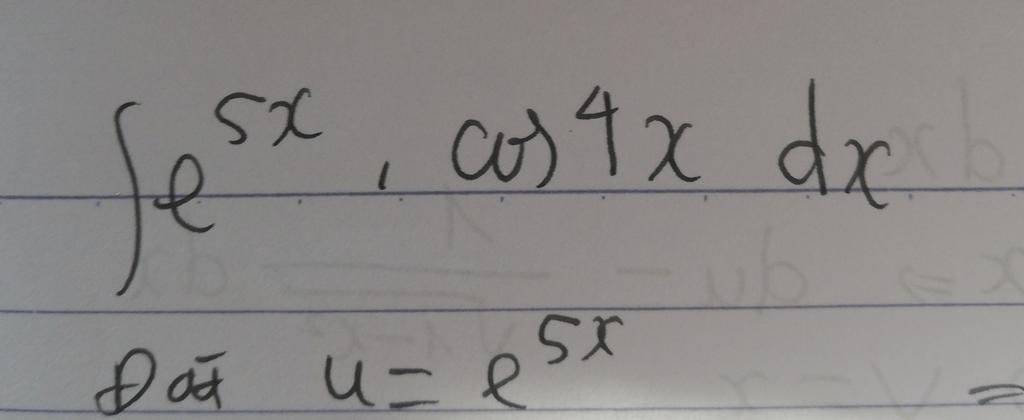 ∫ e^{5x} . cos 4x dx
Đặt u = e^{5x} =